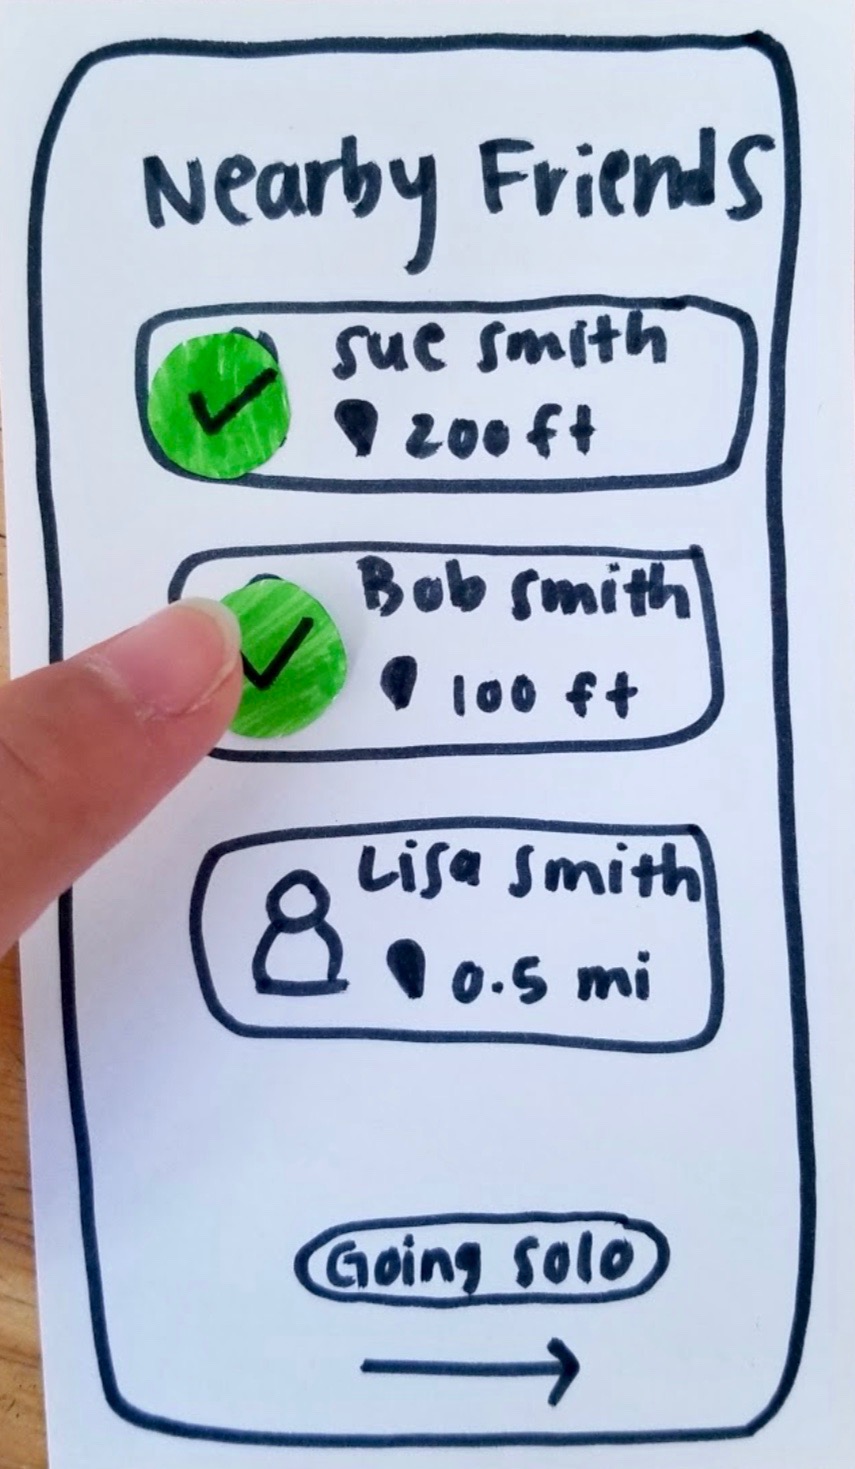 Nearby Friends
Sue Smith
200 ft
Bob Smith
100 ft
Lisa Smith
0.5 mi
Going solo